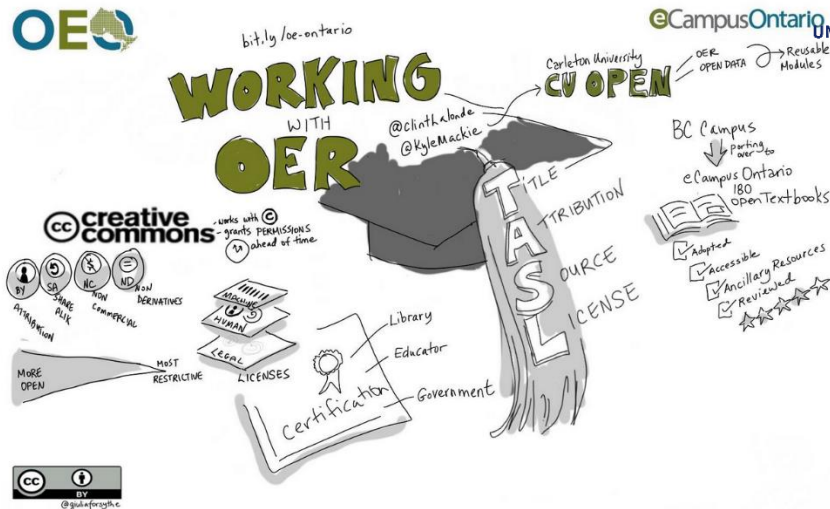 OEO
bit.ly/oe-ontario
WORKING
WITH
OER
@clintlalonde
@KyleMackie
eCampusOntario
UN
Carleton University
CU OPEN
OER
OPEN DATA
Reusable
Modules
BC Campus
porting
over to
eCampus Ontario
180
open Textbooks
Adopted
Accessible
Ancillary Resources
Reviewed
TITLE
ATTRIBUTION
SOURCE
LICENSE
cc creative
commons
- works with ©
- grants PERMISSIONS
ahead of time
BY
ATTRIBUTION
SA
SHARE
ALIK
NC
NON
COMMERCIAL
ND
NON
DERIVATIVES
MORE
OPEN
MOST
RESTRICTIVE
MACHINE
HUMAN
LEGAL
LICENSES
Certification
Library
Educator
Government
cc
BY
@giuliaforsythe